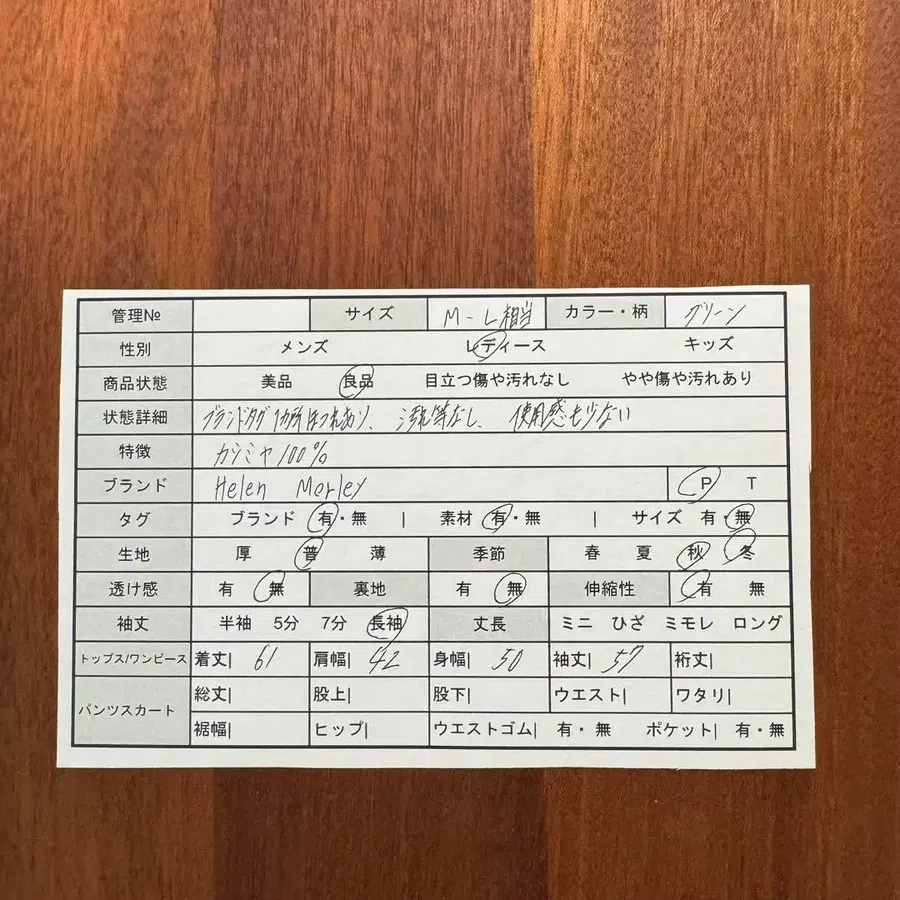 管理№ サイズ M-L相当 カラー・柄 グリーン
性別 メンズ レディース キッズ
商品状態 美品 良品 目立つ傷や汚れなし やや傷や汚れあり
状態詳細 ブランドタグ1カ所ほつれあり、汚れ等なし、使用感も少ない
特徴 カシミヤ100%
ブランド Helen Morley P T
タグ ブランド 有・無 | 素材 有・無 | サイズ 有・無
生地 厚 普 薄 季節 春 夏 秋 冬
透け感 有 無 裏地 有 無 伸縮性 有 無
袖丈 半袖 5分 7分 長袖 丈長 ミニ ひざ ミモレ ロング
トップス/ワンピース 着丈| 61 肩幅| 42 身幅| 50 袖丈| 57 裄丈|
パンツスカート 総丈| 股上| 股下| ウエスト| ワタリ|
裾幅| ヒップ| ウエストゴム| 有・無 ポケット| 有・無